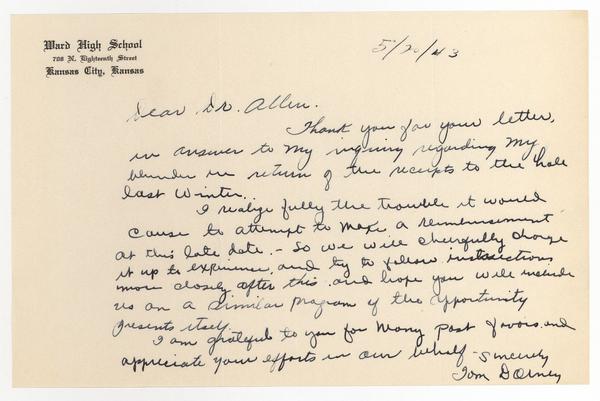 Ward High School
708 N. Eighteenth Street
Kansas City, Kansas
5/20/43
Dear Dr. Allen.
Thank you for your letter,
in answer to my inquiry regarding my
blunder in return of the receipts to the
last Winter.
I realize fully the trouble it would
cause to attempt to make a reimbursement
at this late date. - So we will cheerfully charge
it up to experience, and try to follow instructions
more closely after this, and hope you will include
us on a similar program if the opportunity
presents itself.
I am grateful to you for many past favors, and
appreciate your efforts in our behalf - Sincerely
Tom Dorney